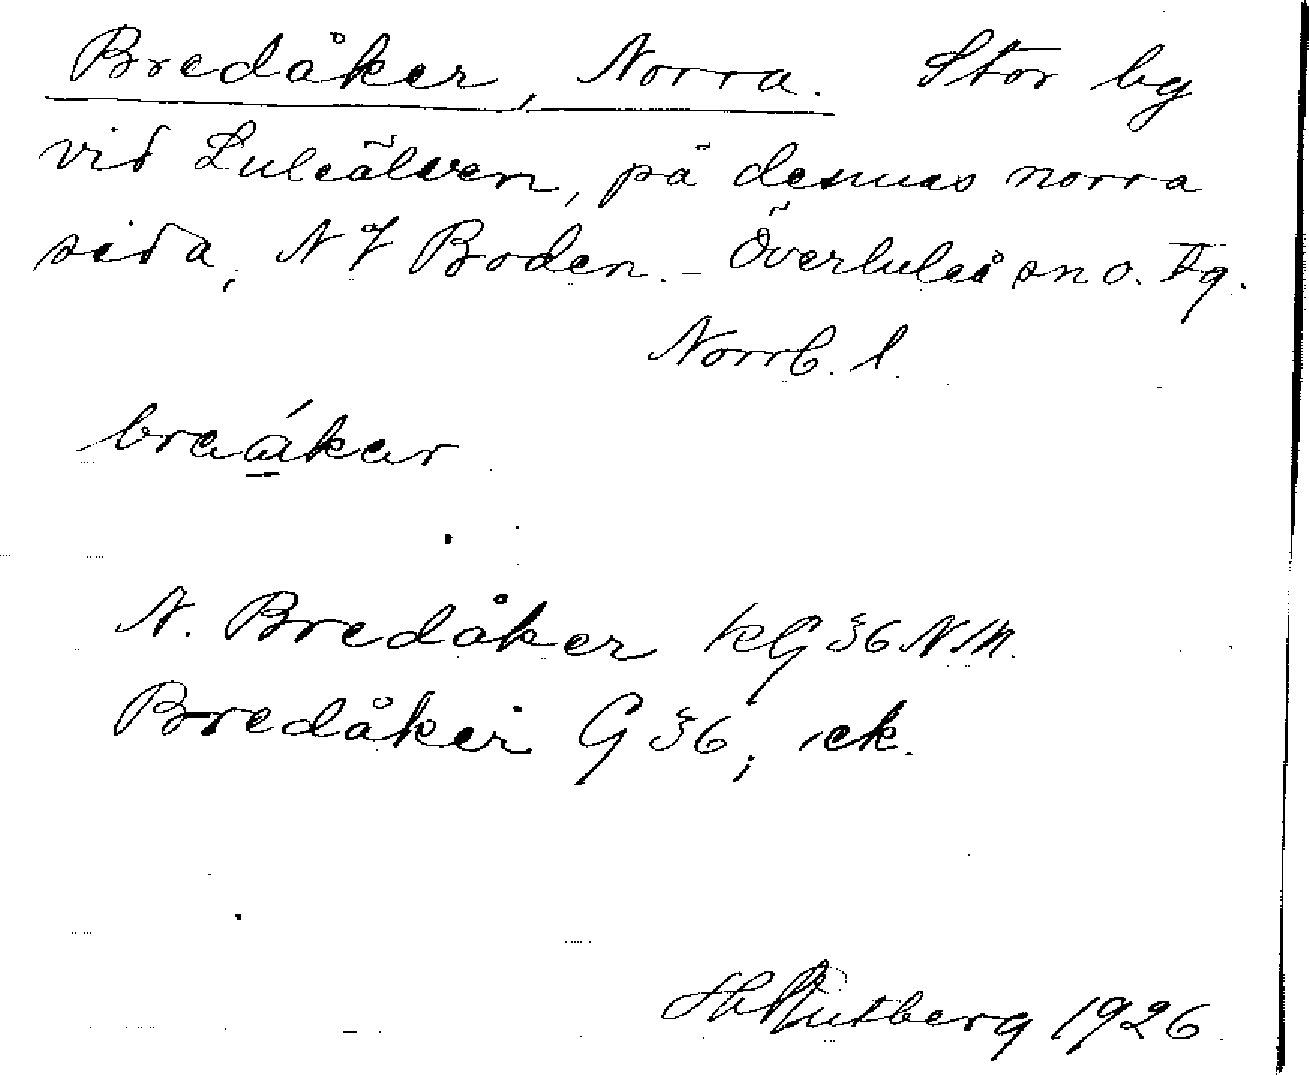 Bredåker, Norra. Stor by
vid Luleälven, på dennes norra
sida, NV Boden. - Överluleå sn o. tg.
Norrb. l.
braákar
N. Bredåker kG 36 NM.
Bredåker G 36, ek.
H Rutberg 1926